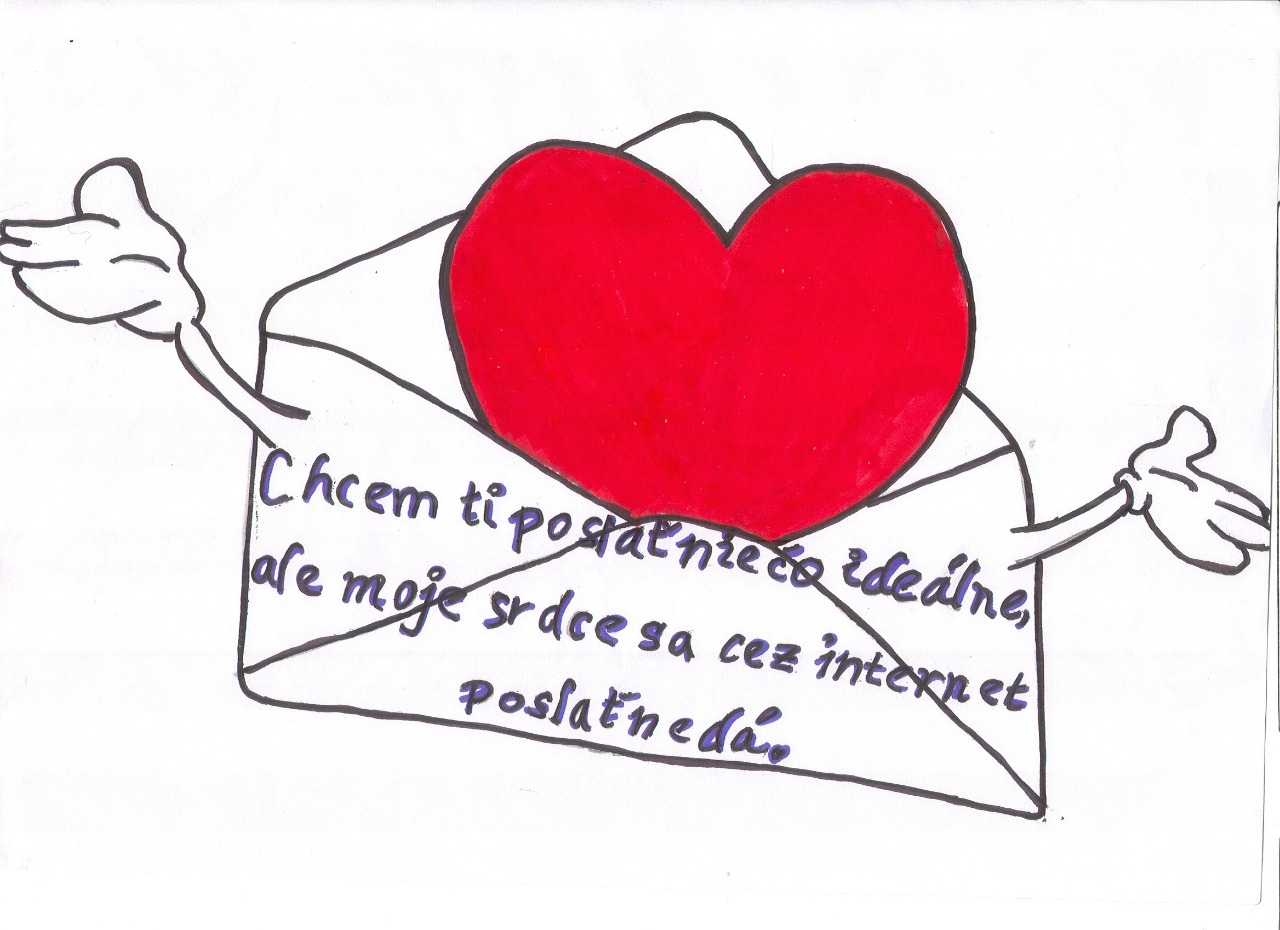 Chcem ti poslať niečo ideálne,
ale moje srdce sa cez internet
poslať nedá.